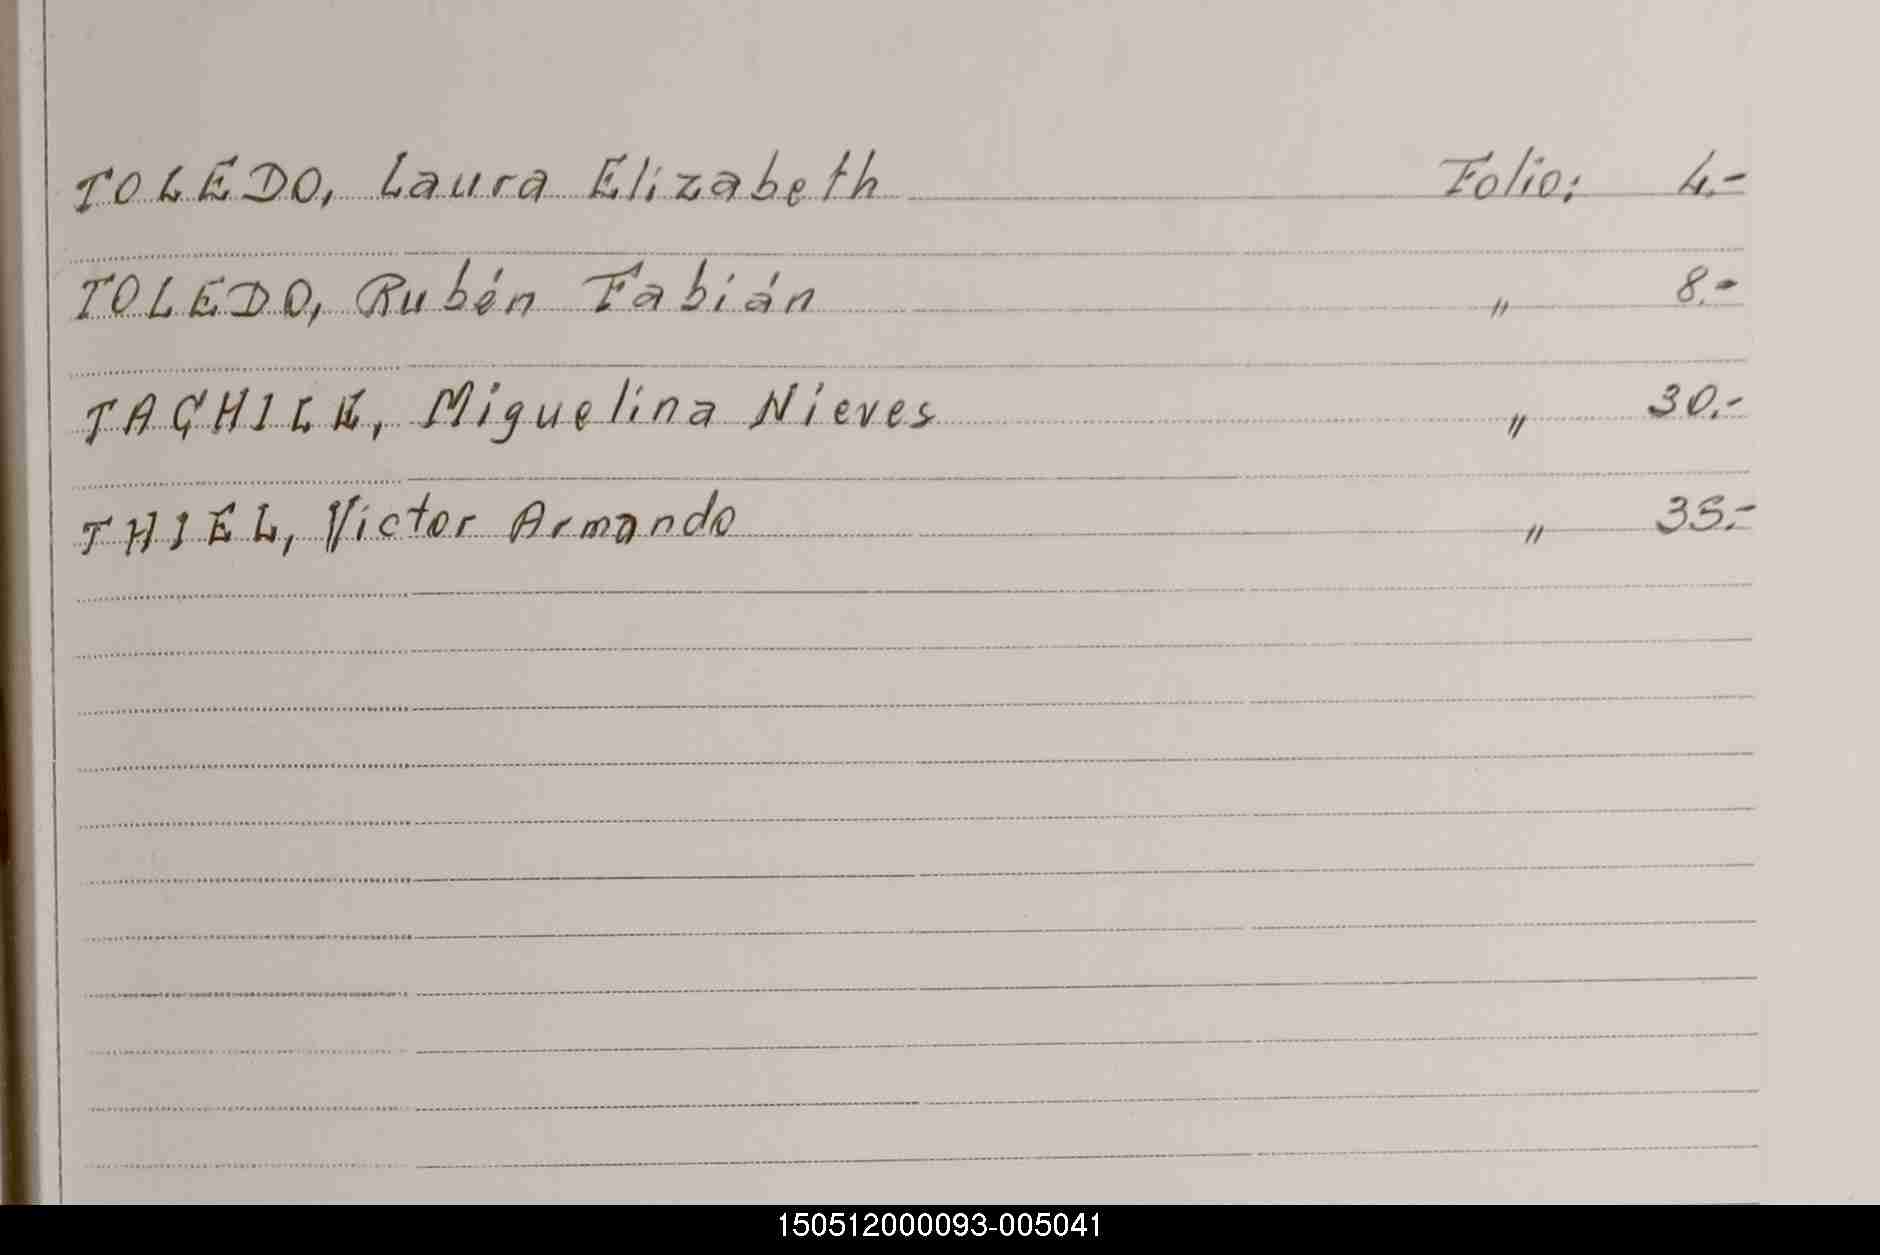 TOLEDO, Laura Elizabeth Folio: 4.-
TOLEDO, Rubén Fabián " 8.-
TACHILE, Miguelina Nieves " 30.-
THIEL, Victor Armando " 35.-
150512000093-005041